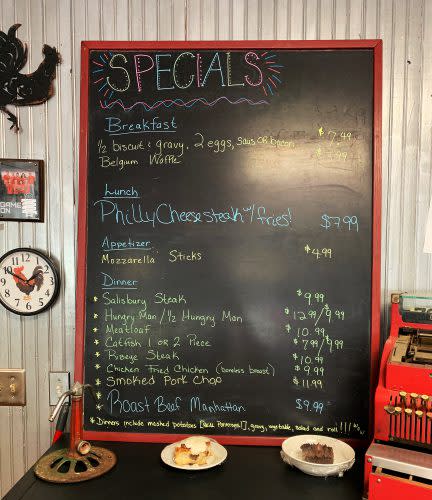 SPECIALS
Breakfast
1/2 biscuit & gravy, 2 eggs, saus OR bacon $7.99
Belgium Waffle
Lunch
Philly Cheesesteak w/ fries! $7.99
Appetizer
Mozzarella Sticks $4.99
Dinner
* Salisbury Steak $9.99
* Hungry Man / 1/2 Hungry Man $12.99/9.99
* Meatloaf $10.99
* Catfish 1 OR 2 Piece $7.99/9.99
* Ribeye Steak $10.99
* Chicken Fried Chicken (boneless breast) $9.99
* Smoked Pork Chop $11.99
* Roast Beef Manhattan $9.99
* Dinners include mashed potatoes gravy, vegetable, salad and roll !!!
GAME ON